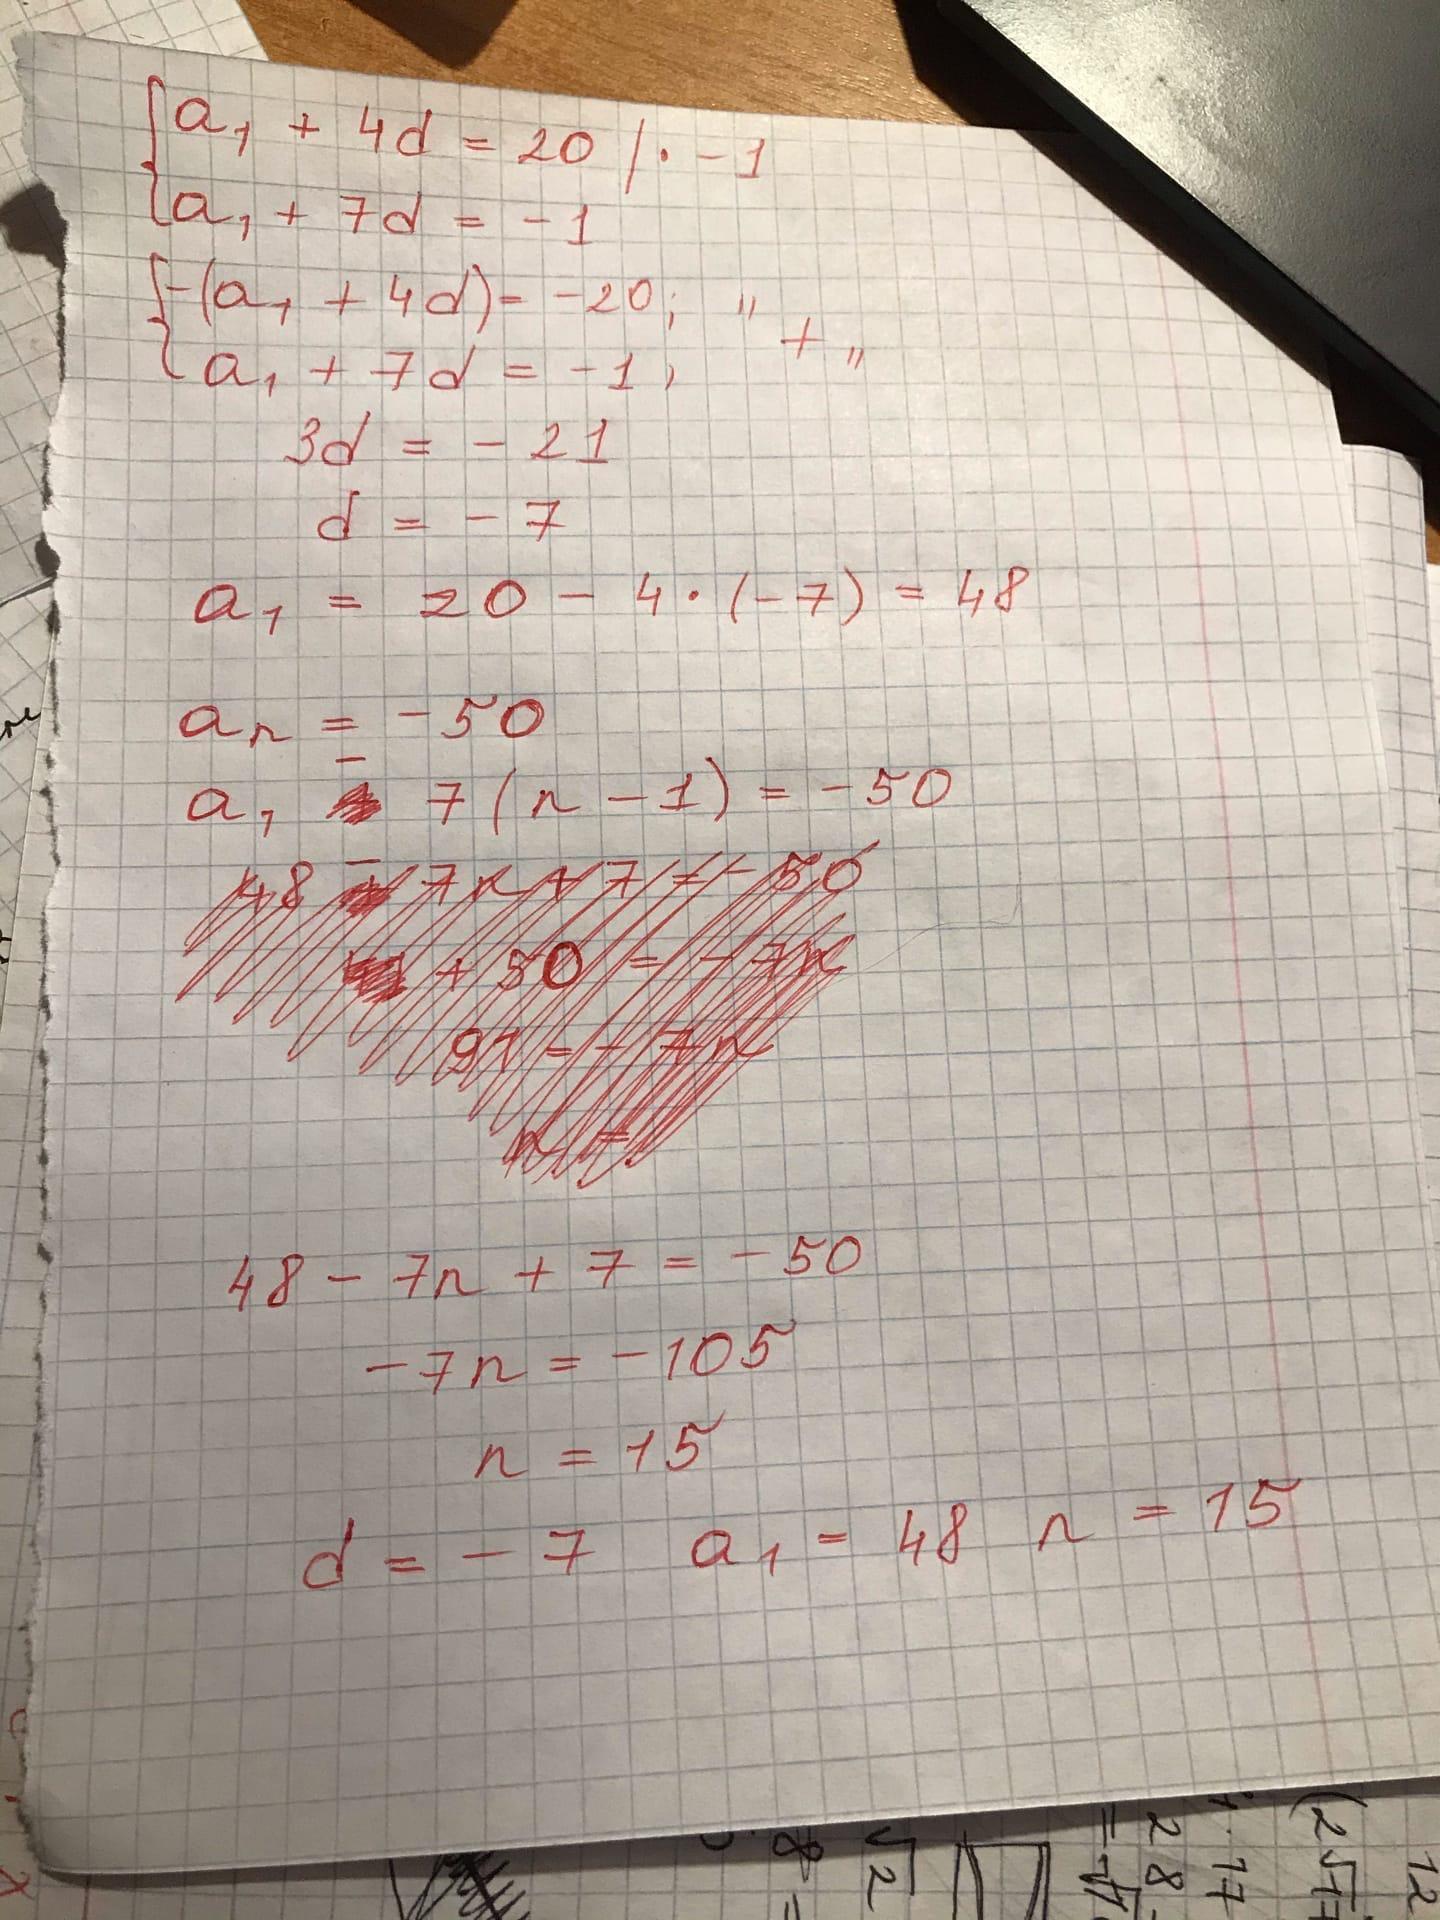 a₁ + 4d = 20 | · -1
a₁ + 7d = -1
-(a₁ + 4d) = -20; " + „
a₁ + 7d = -1;
3d = -21
d = -7
a₁ = 20 - 4 · (-7) = 48
aₙ = -50
a₁ - 7(n - 1) = -50
48 - 7n + 7 = -50
+ 50 = -7n
91 = -7n
n =
48 - 7n + 7 = -50
-7n = -105
n = 15
d = -7 a₁ = 48 n = 15